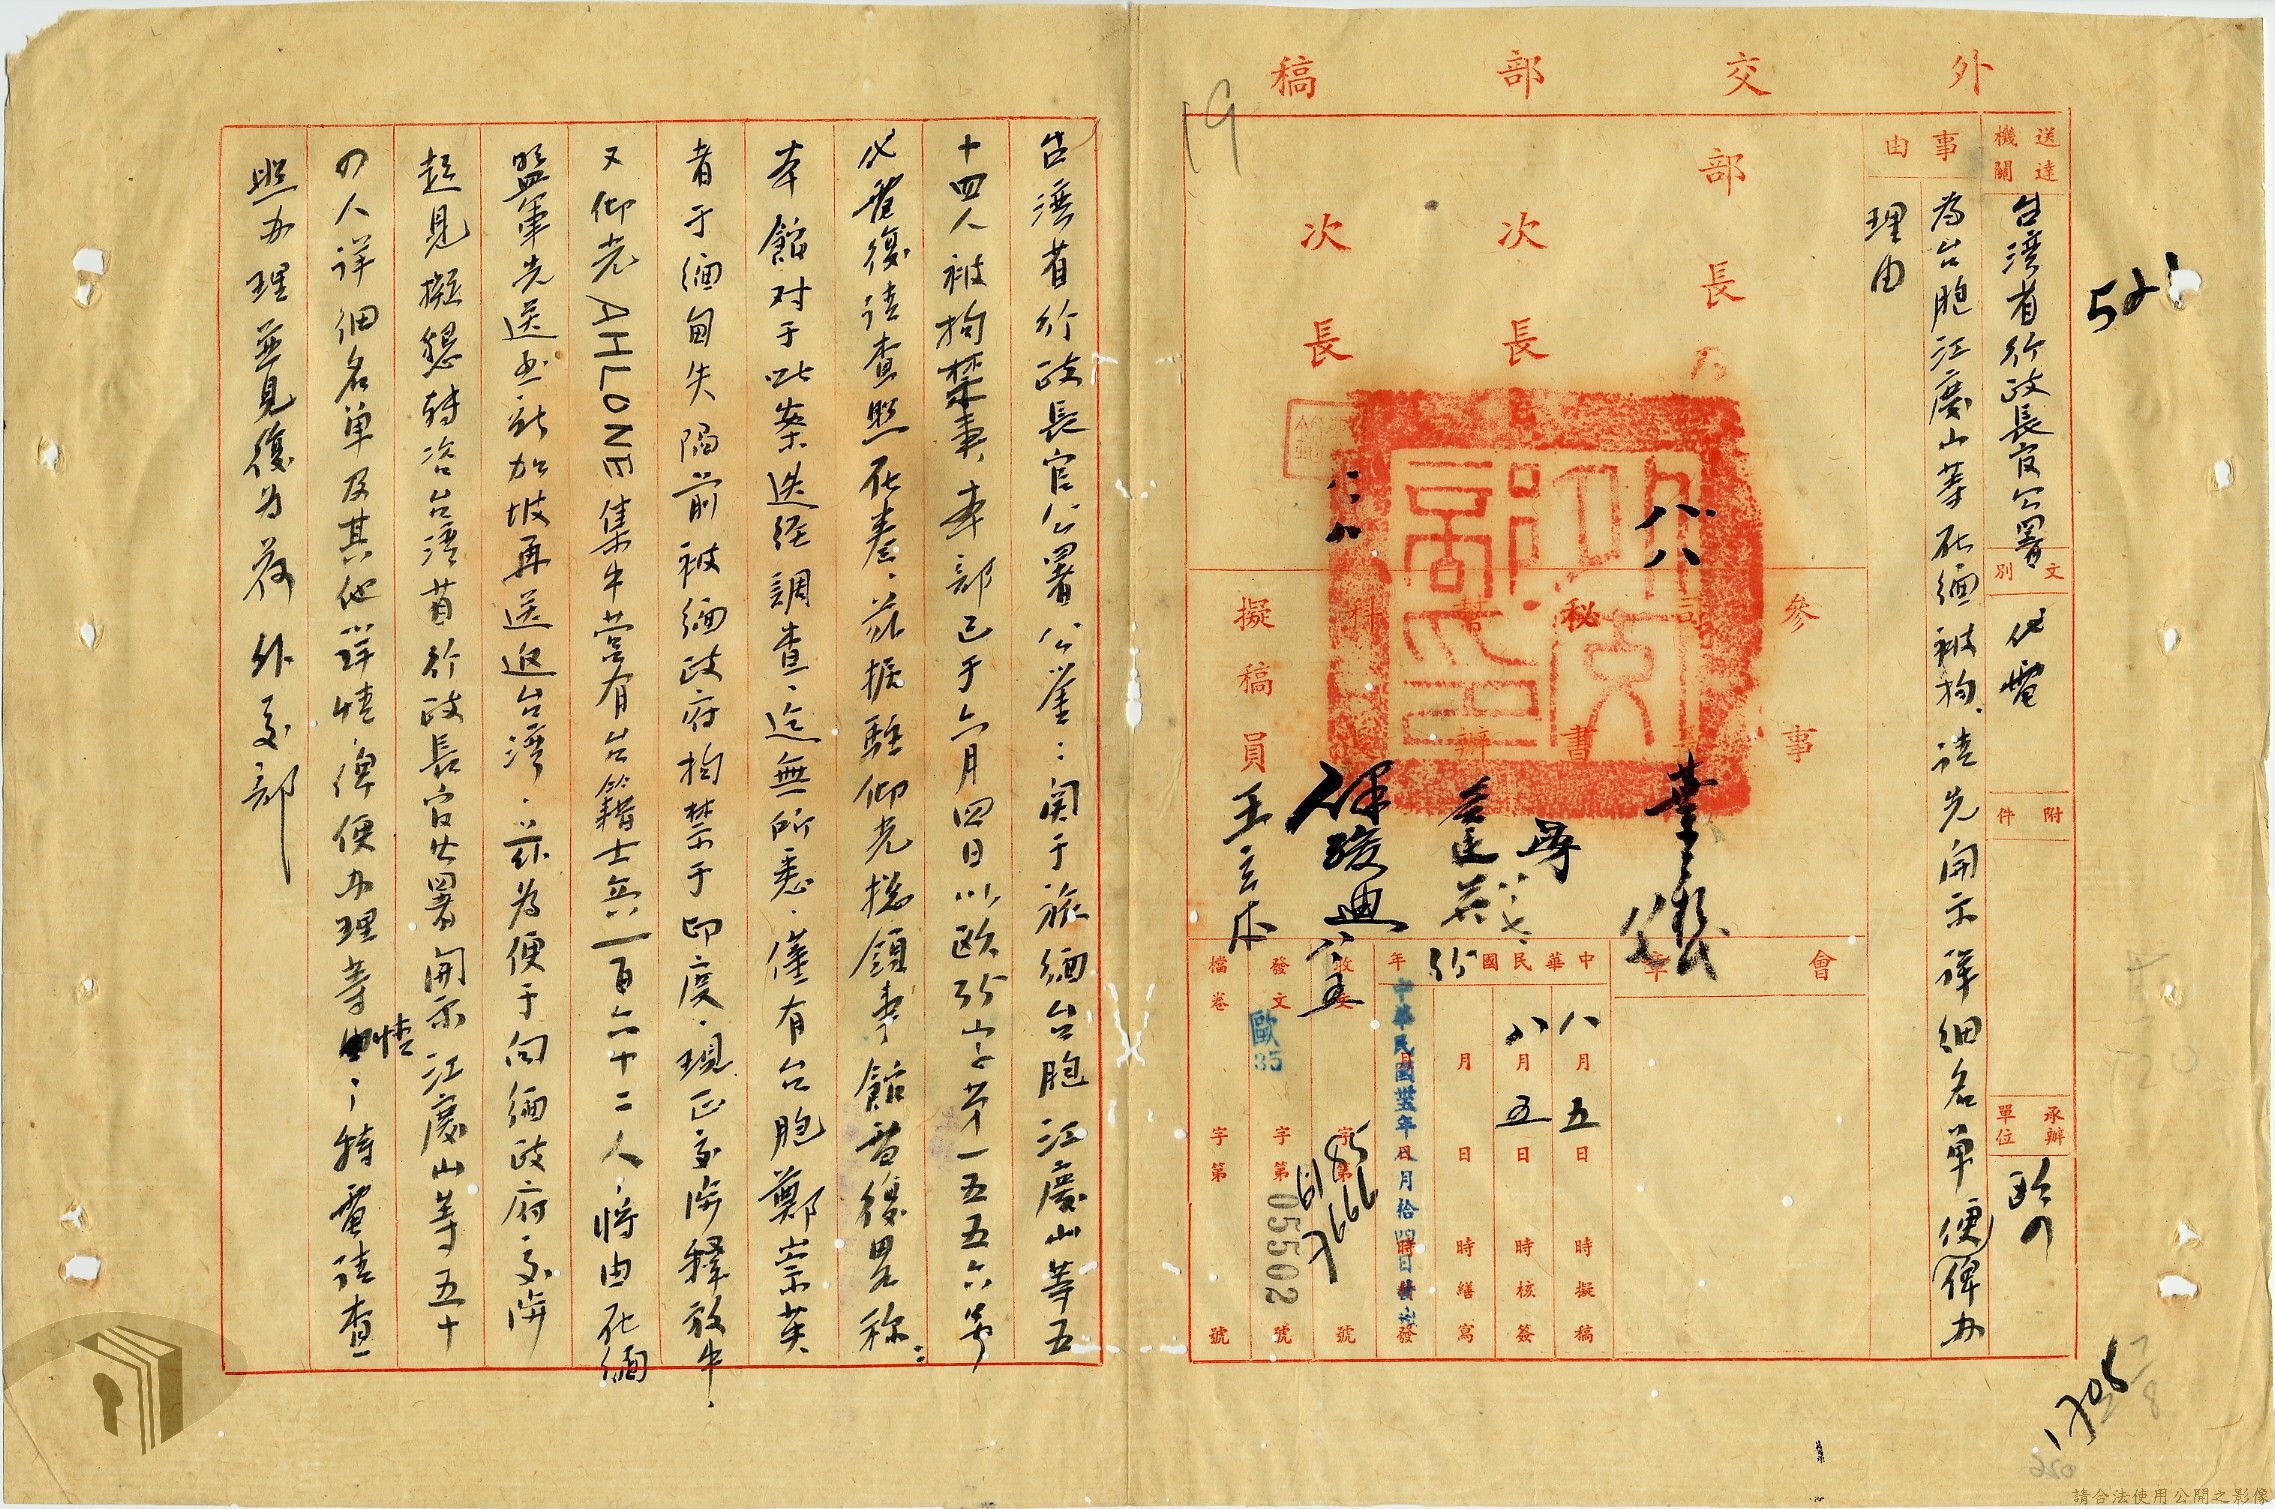 外交部稿
送達機關
台灣省行政長官公署
文別
代電
附件
承辦單位
歐
事由
為台胞江慶山等在緬被拘請先開示詳細名單便俾办
理由
部長
次長
次長
參事
司長
秘書
科長
擬稿員
王
會章
中華民國年
八月五日時擬稿
八月五日時核簽
月日時繕寫
中華民國卅五年八月拾四日
收文字第號
發文字第號
歐35
05502
檔卷字第號
521
19
台灣省行政長官公署公鑒：関于旅緬台胞江慶山等五
十四人被拘禁事，本部已于六月四日以歐35字第一五五六六號
代電復請查照在卷。茲據駐仰光總領事館電復畧稱：
本館对于此案迭經調查，迄無所悉，僅有台胞鄭崇英
者于緬甸失陷前被緬政府拘禁于印度，現正交涉釋放中，
又仰光AHLONE集中营有台籍士兵一百六十二人，將由在緬
盟軍先送至新加坡再送返台灣，茲為便于向緬政府交涉
起見擬懇轉洽台灣省行政長官公署開示江慶山等五十
四人詳細名單及其他詳情，俾便办理等情，特電請查
照办理並見復为荷 外交部
請合法使用公開之影像